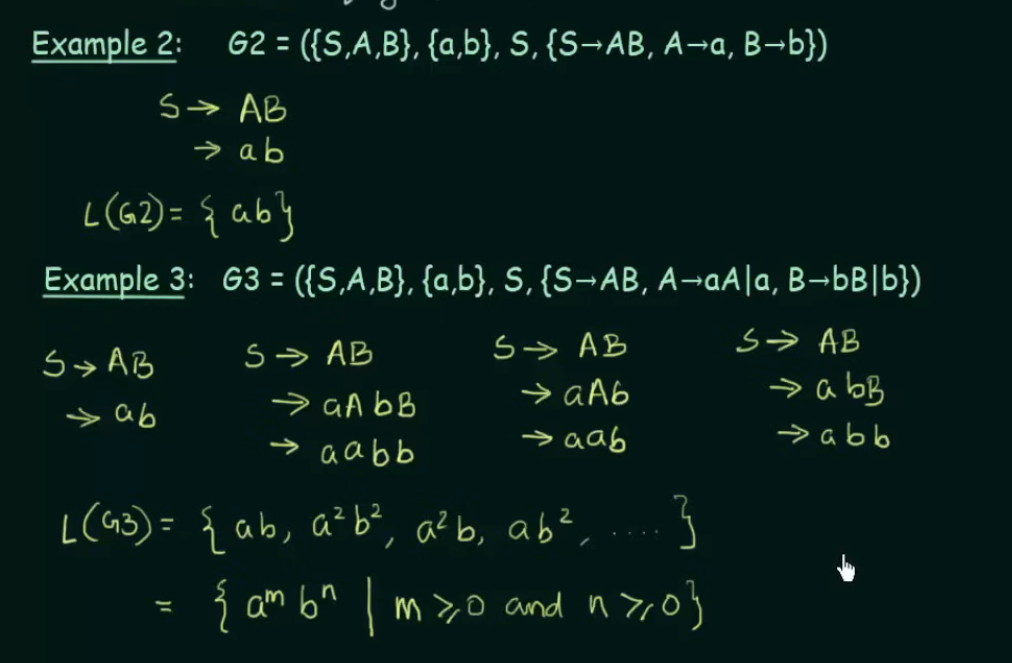 Example 2: G2 = ({S,A,B}, {a,b}, S, {S→AB, A→a, B→b})
S → AB
→ ab
L(G2) = { ab }
Example 3: G3 = ({S,A,B}, {a,b}, S, {S→AB, A→aA|a, B→bB|b})
S → AB S → AB S → AB S → AB
→ ab → aAbB → aAb → abB
→ aabb → aab → abb
L(G3) = { ab, a²b², a²b, ab², .... }
= { aᵐ bⁿ | m ⩾ 0 and n ⩾ 0 }